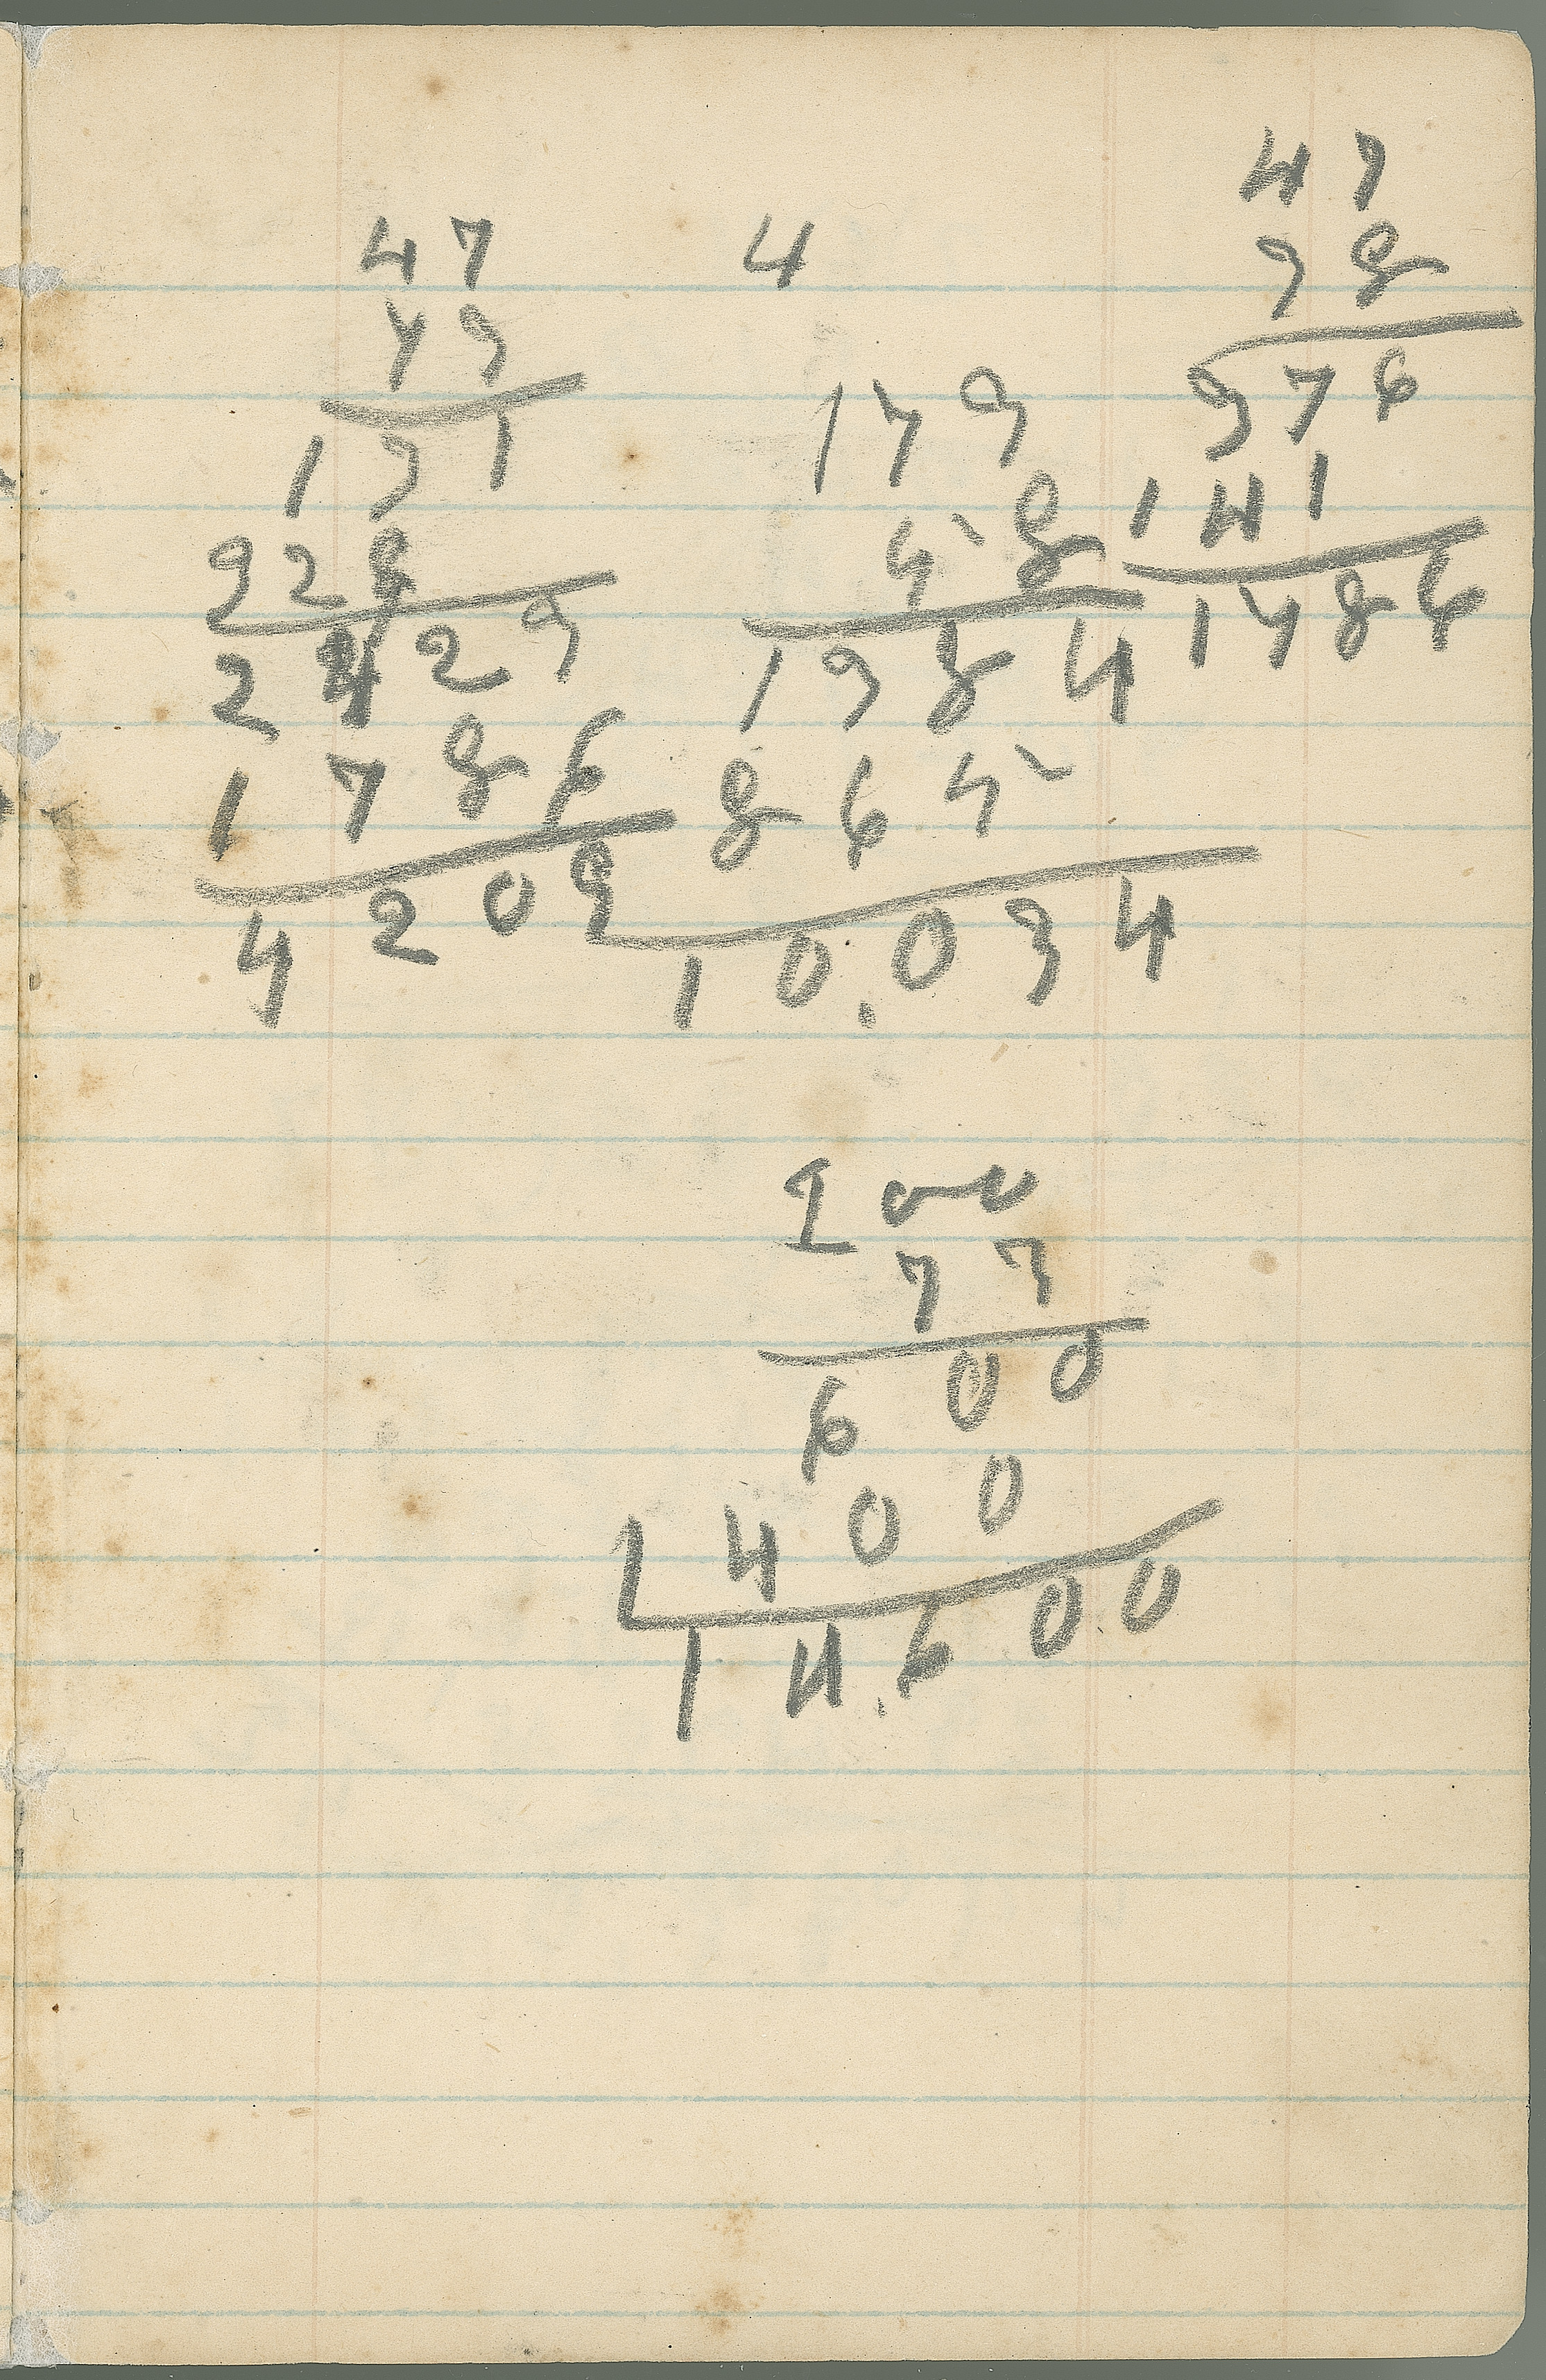 47
73
131
328
2423
1786
4209
4
173
58
1384
865
10.034
47
38
376
141
1786
200
73
600
1400
14.600